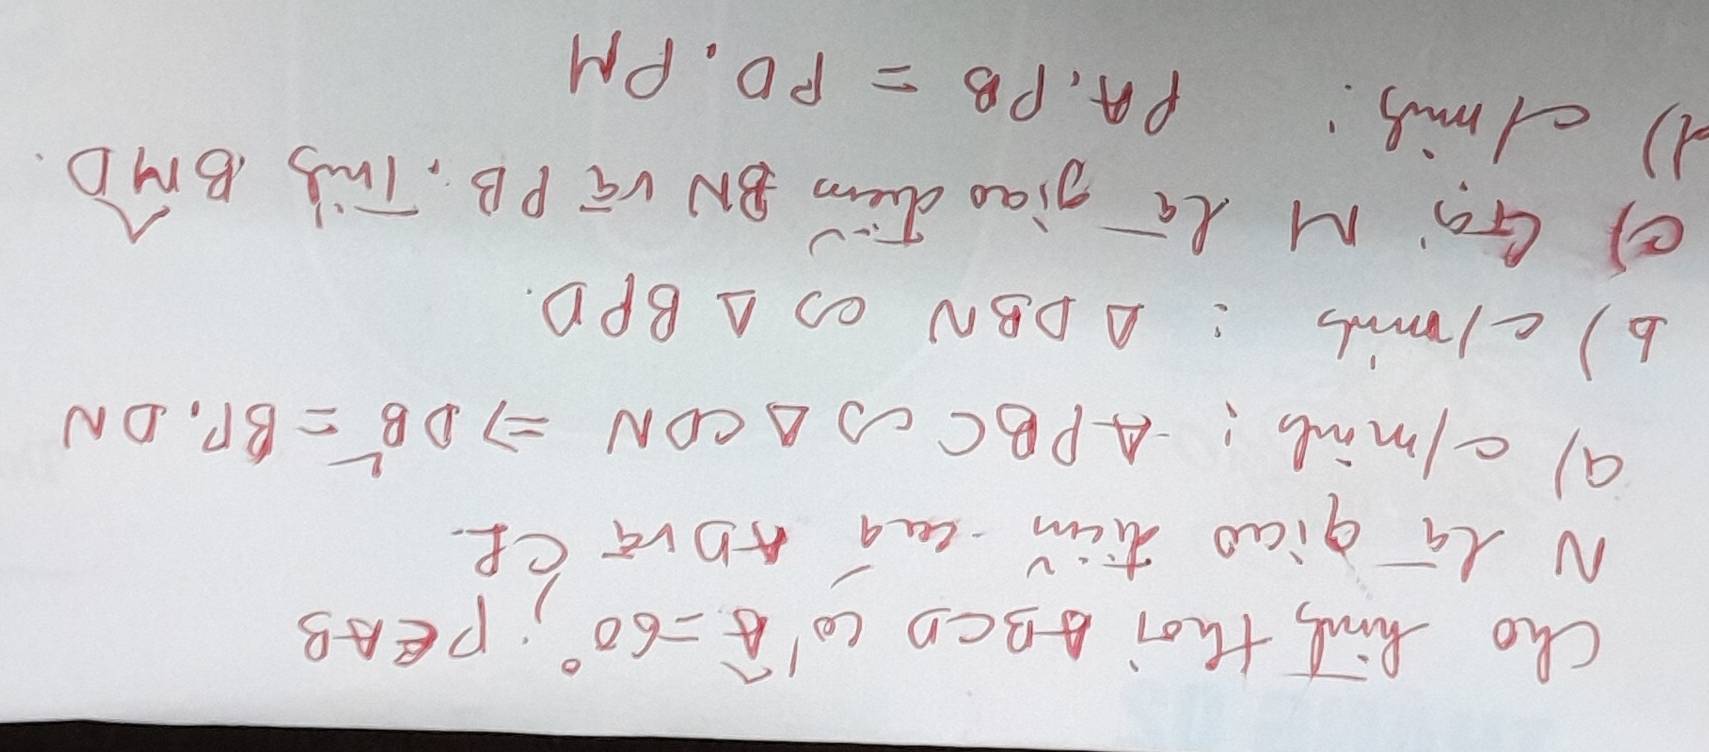 Cho hình thoi ABCD có Â = 60°; P ∈ AB
N là giao điểm của AD và CP.
a) c/minh : Δ PBC ∽ Δ CDN => DB² = BP. DN
b) c/minh : Δ DBN ∽ Δ BPD.
c) Gọi M là giao điểm BN và PB. Tính BM̂D.
d) c/minh : PA. PB = PD. PM